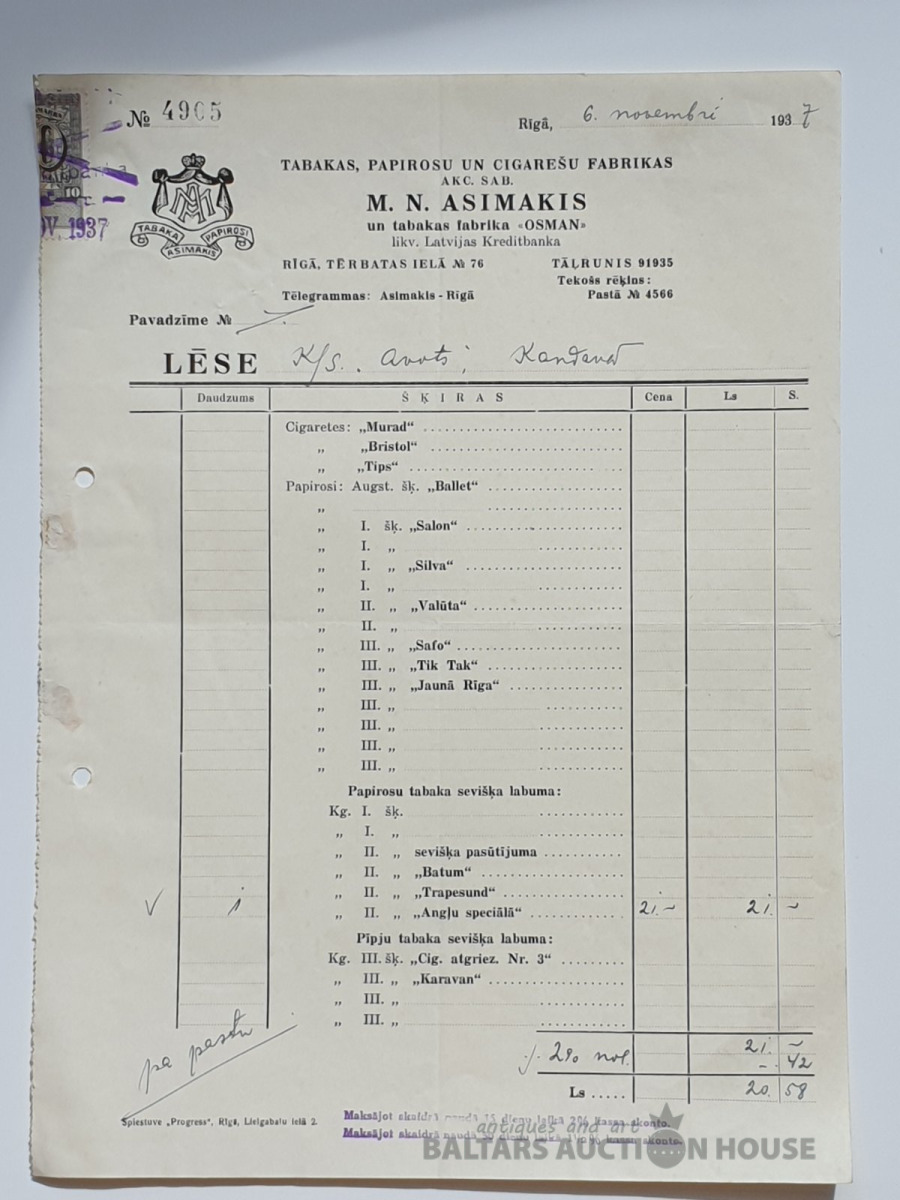 № 4905
Rīgā, 6. novembrī 1937
10
OV 1937
TABAKA PAPIROSI
ASIMAKIS
TABAKAS, PAPIROSU UN CIGAREŠU FABRIKAS
AKC. SAB.
M. N. ASIMAKIS
un tabakas fabrika «OSMAN»
likv. Latvijas Kreditbanka
RĪGĀ, TĒRBATAS IELĀ № 76 TĀĻRUNIS 91935
Tekošs rēķins:
Tēlegrammas: Asimakis - Rīgā Pastā № 4566
Pavadzīme №
LĒSE K/s. Avots, Kandavā
Daudzums ŠĶIRAS Cena Ls S.
Cigaretes: „Murad“
„ „Bristol“
„ „Tips“
Papirosi: Augst. šķ. „Ballet“
„
„ I. šķ. „Salon“
„ I. „
„ I. „ „Silva“
„ I. „
„ II. „ „Valūta“
„ II. „
„ III. „ „Safo“
„ III. „ „Tik Tak“
„ III. „ „Jaunā Rīga“
„ III. „
„ III. „
„ III. „
„ III. „
Papirosu tabaka sevišķa labuma:
Kg. I. šķ.
„ I. „
„ II. „ sevišķa pasūtījuma
„ II. „ „Batum“
„ II. „ „Trapesund“
V 1 „ II. „ „Angļu speciālā“ 21.- 21. -
Pīpju tabaka sevišķa labuma:
Kg. III. šķ. „Cig. atgriez. Nr. 3“
„ III. „ „Karavan“
„ III. „
„ III. „
pa pastu
21. -
./. 2% nol. -. 42
Ls ..... 20. 58
Spiestuve „Progress“, Rīgā, Lielgabalu ielā 2.
Maksājot skaidrā naudā 15 dienu laikā 2% kassa skonto.
Maksājot skaidrā naudā 30 dienu laikā 1½% kassa skonto.
antiques and art
BALTARS AUCTION HOUSE